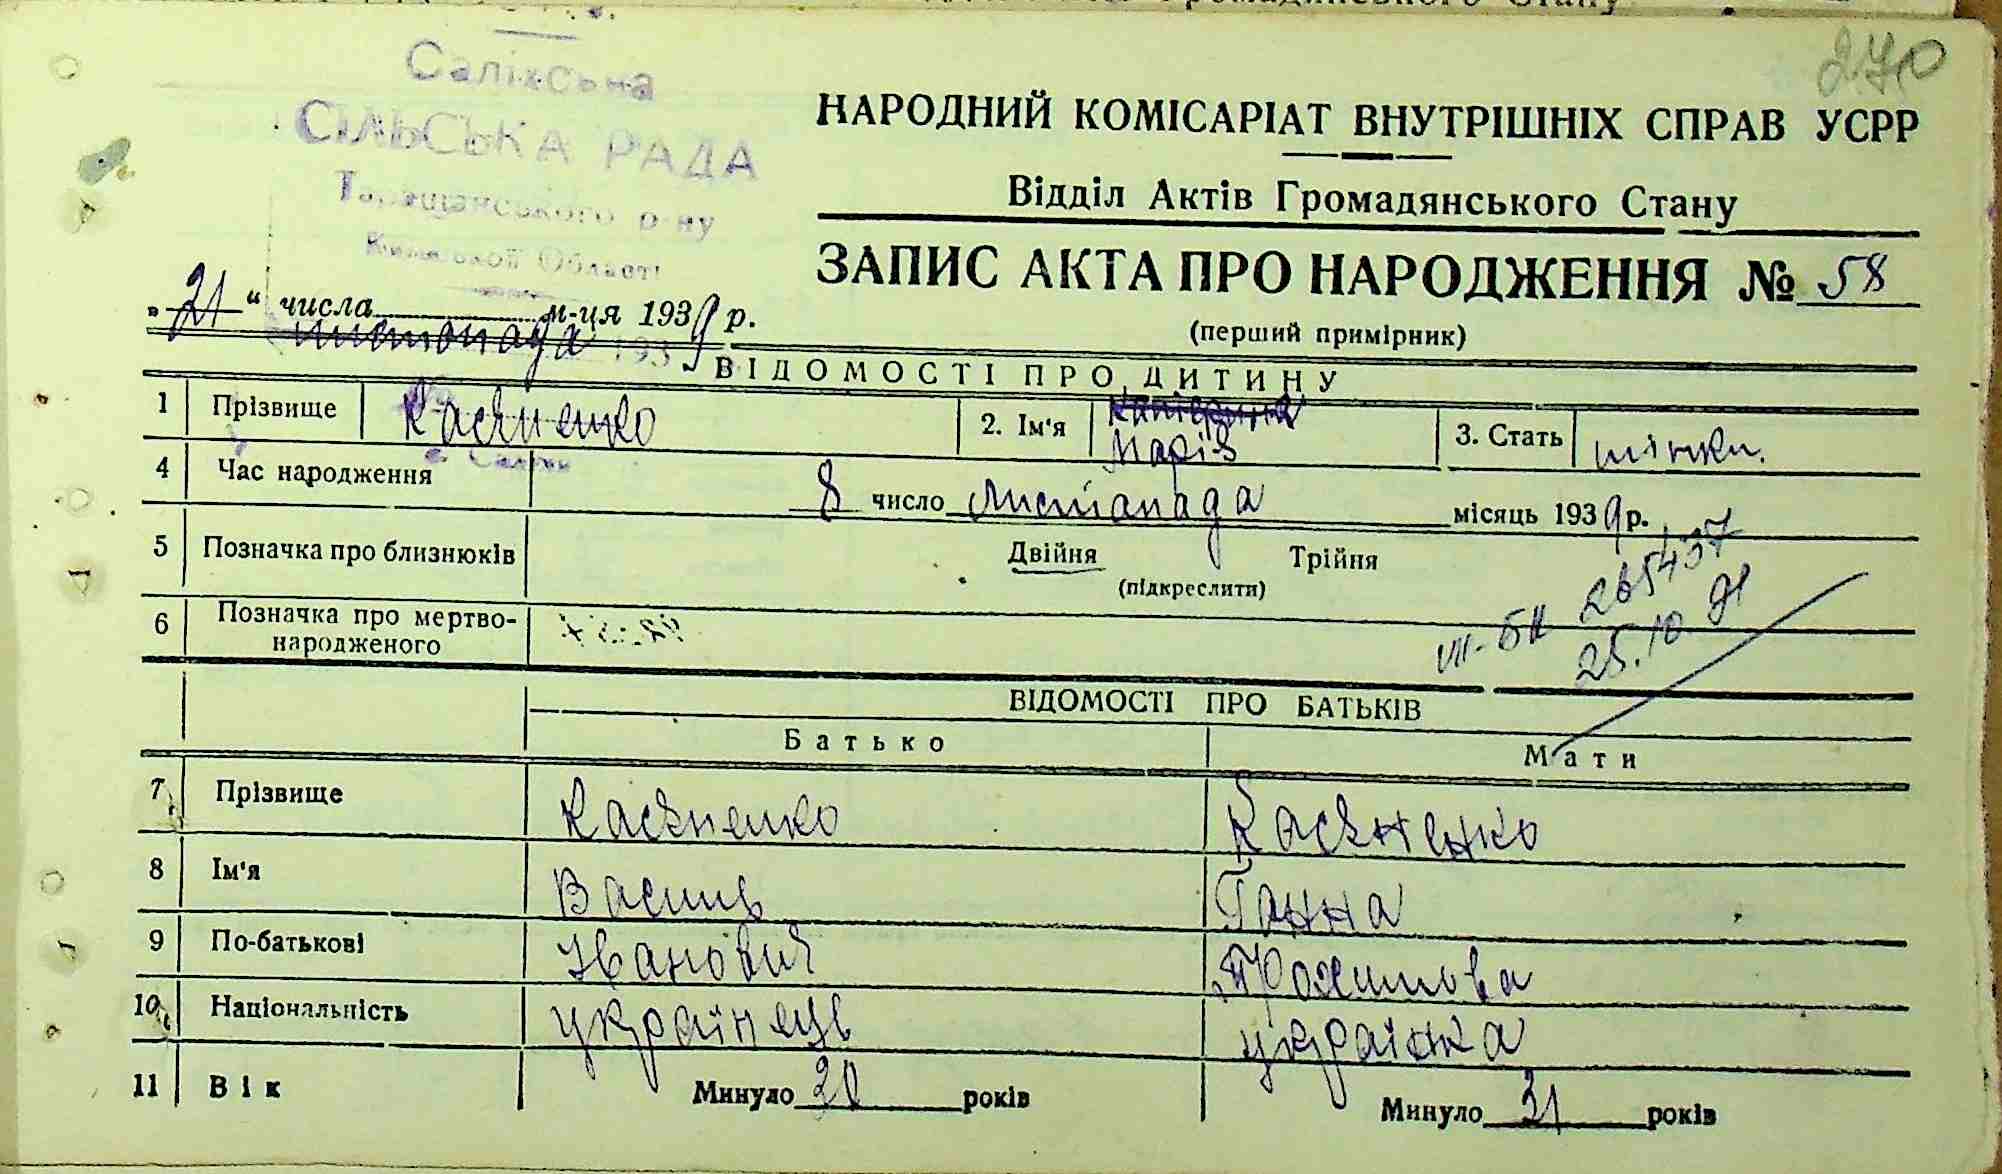 270
Саліхська
СІЛЬСЬКА РАДА
Таращанського р-ну
Київської Області
НАРОДНИЙ КОМІСАРІАТ ВНУТРІШНІХ СПРАВ УСРР
Відділ Актів Громадянського Стану
ЗАПИС АКТА ПРО НАРОДЖЕННЯ № 58
(перший примірник)
„21“ числа м-ця 1939 р.
листопада 1939
ВІДОМОСТІ ПРО ДИТИНУ
1 Прізвище Касяненко 2. Ім'я Катерина Марія 3. Стать жінки.
4 Час народження 8 число листопада місяць 1939 р.
5 Позначка про близнюків Двійня Трійня
(підкреслити)
6 Позначка про мертво-
народженого
VII-БК 265437
25.10 91
ВІДОМОСТІ ПРО БАТЬКІВ
Батько Мати
7 Прізвище Касяненко Касяненко
8 Ім'я Василь Ганна
9 По-батькові Іванович Трохимова
10 Національність українець українка
11 Вік Минуло 30 років Минуло 31 років